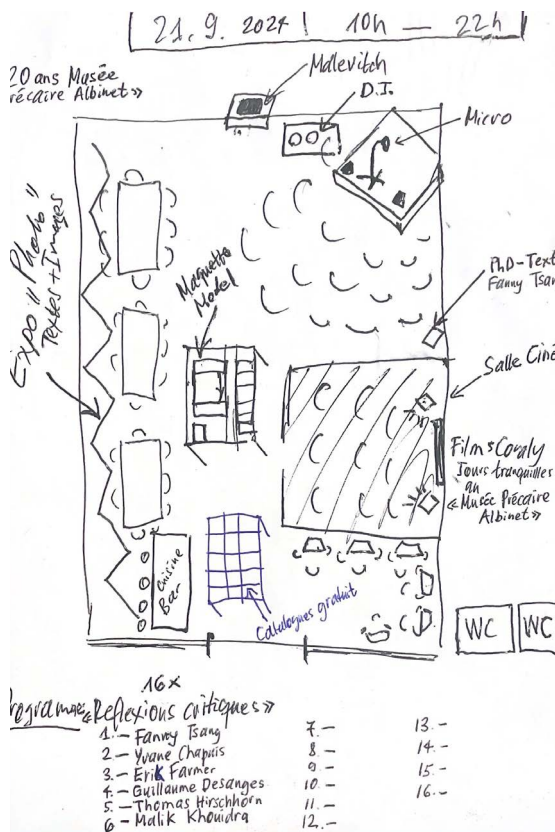 21. 9. 2024 | 10h — 22h
20 ans Musée
Précaire Albinet»
Malevitch
D.I.
Micro
Expo "Photo"
Textes + Images
Maquette
Model
PhD-Text
Fanny Tsang
Salle Ciné
Film: Coraly
Jours tranquilles
au
«Musée Précaire
Albinet»
Cuisine
Bar
Catalogues gratuit
WC
WC
16x
Programme «Reflexions critiques»
1.— Fanny Tsang
2 — Yvane Chapuis
3.— Erik Farmer
4.— Guillaume Desanges
5.— Thomas Hirschhorn
6 — Malik Khouidra
7.—
8 —
9 —
10 —
11.—
12.—
13.—
14.—
15.—
16.—